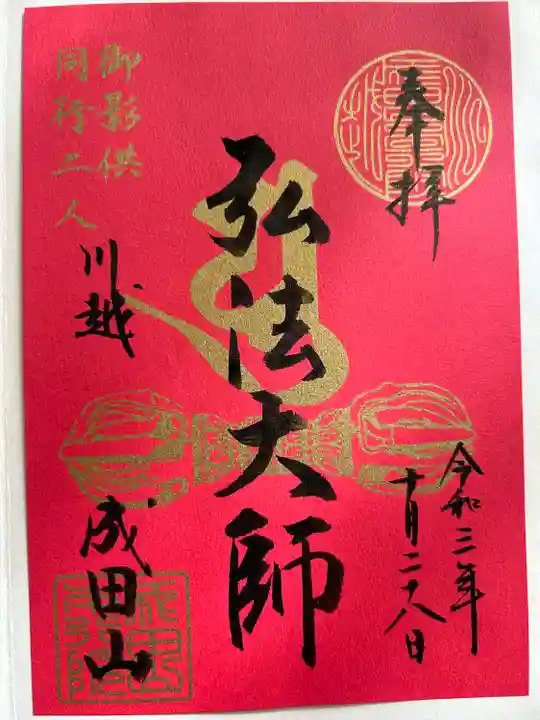 奉拝
令和三年
十月二十八日
弘法大師
御影供
同行二人
川越
成田山